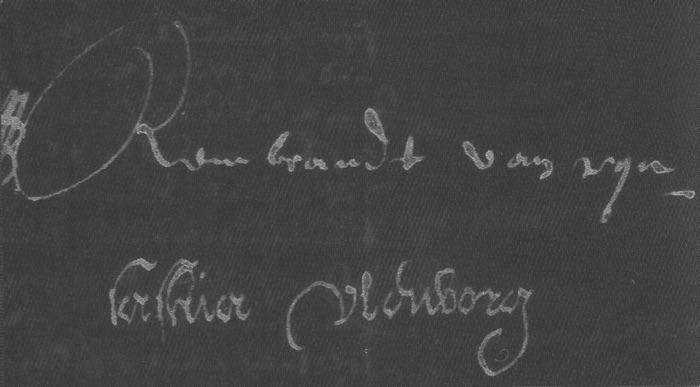 Rembrandt van Ryn
saskia vlenborg